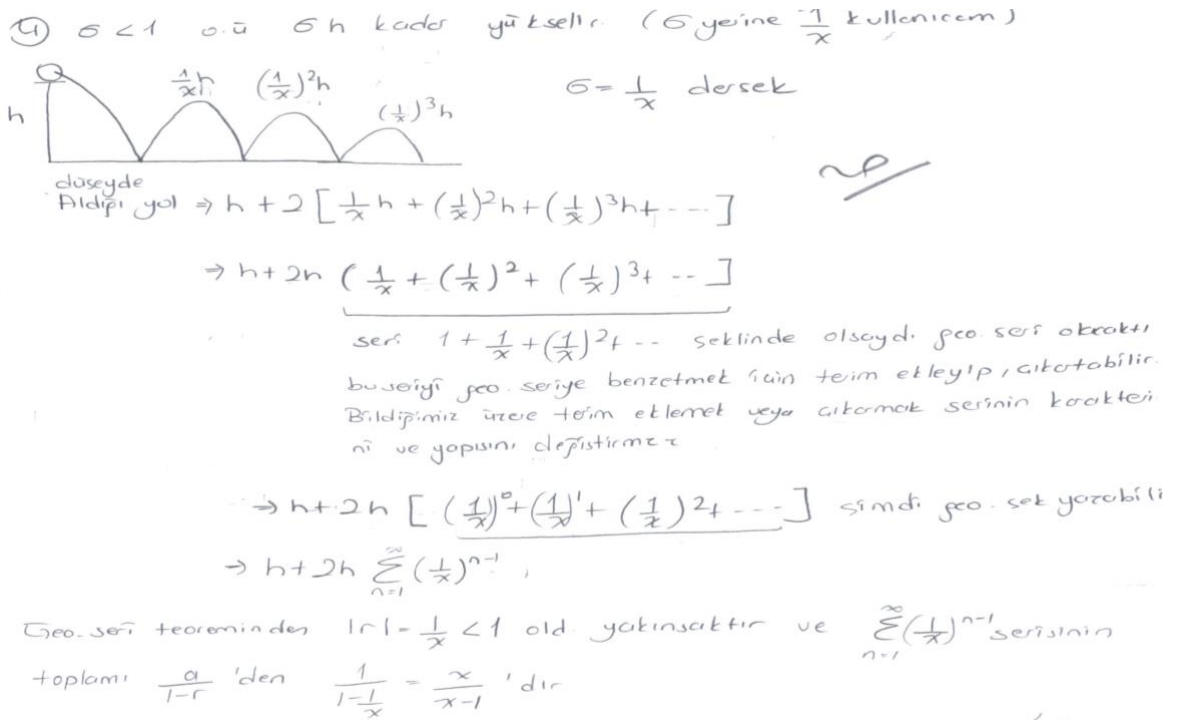 ④ σ<1 o.ü σh kadar yükselir. (σ yerine 1/x kullanıcam)
1/x h (1/x)²h (1/x)³h
σ = 1/x dersek
h
düşeyde
Aldığı yol ⇒ h + 2 [1/x h + (1/x)²h + (1/x)³h + ---]
⇒ h + 2h (1/x + (1/x)² + (1/x)³ + --]
seri 1 + 1/x + (1/x)² + -- şeklinde olsaydı geo. seri olacaktı
bu seriyi geo. seriye benzetmek için terim ekleyip, çıkartabilir.
Bildiğimiz üzere terim eklemek veya çıkarmak serinin karakteri
ni ve yapısını değiştirmez
⇒ h + 2h [(1/x)⁰ + (1/x)¹ + (1/x)² + ----] şimdi geo. sek yazabili
→ h + 2h ∞Σn=1 (1/x)ⁿ⁻¹,
Geo. seri teoreminden |r| = 1/x < 1 old. yakınsaktır ve ∞Σn=1 (1/x)ⁿ⁻¹ serisinin
toplamı a/1-r 'den 1/1-1/x = x/x-1 'dir